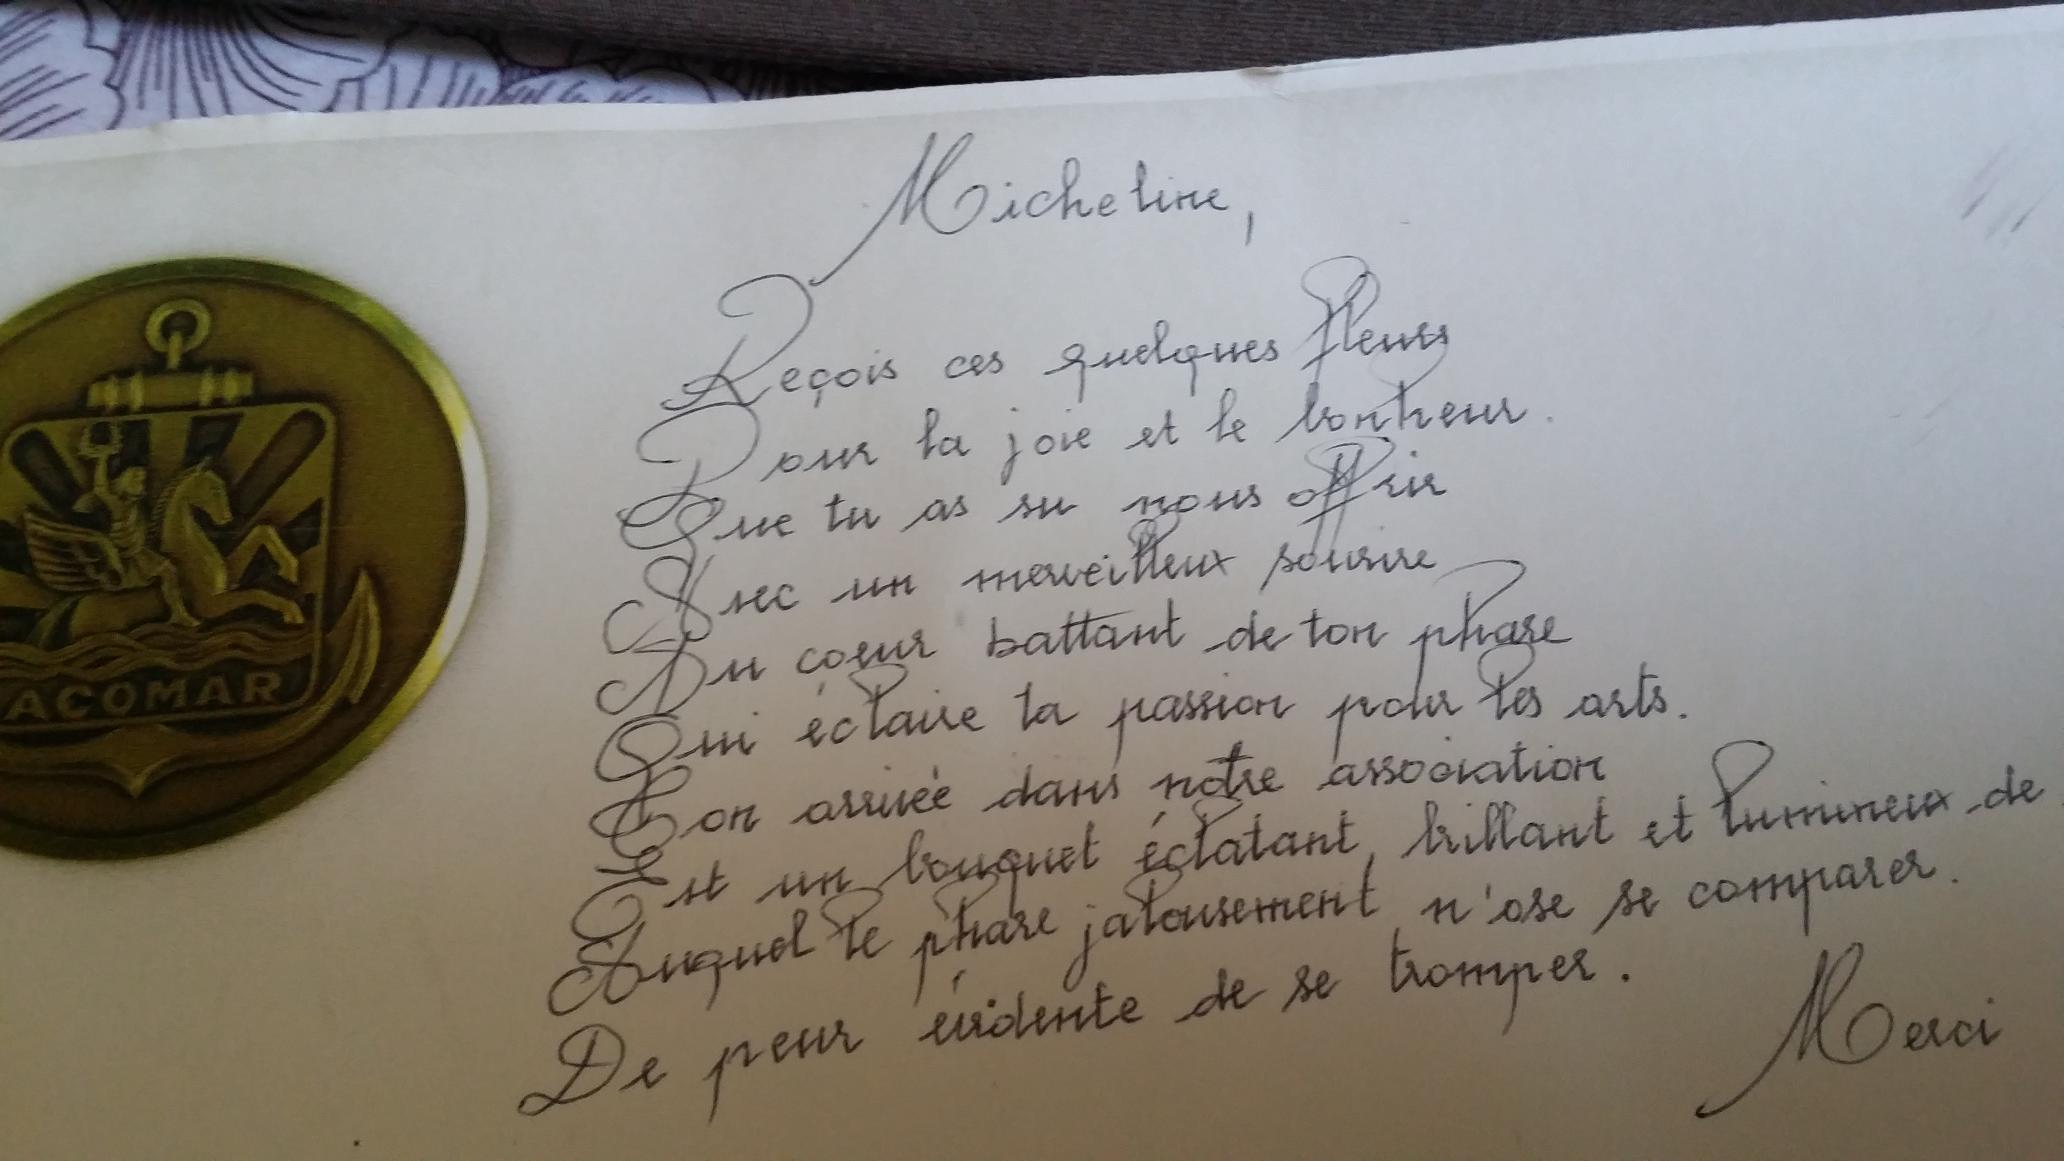 Micheline,
Reçois ces quelques fleurs
Pour la joie et le bonheur.
Que tu as su nous offrir
Avec un merveilleux sourire
Au coeur battant de ton phare
Qui éclaire ta passion pour les arts.
Ton arrivée dans notre association
Est un bouquet éclatant, brillant et lumineux de
Auquel le phare jalousement n'ose se comparer.
De peur évidente de se tromper.
Merci
ACOMAR